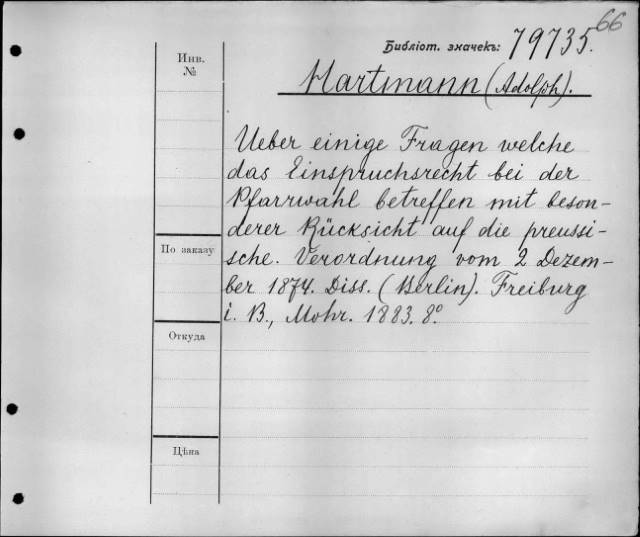 66
Библіот. значекъ: 79735.
Инв.
№
Hartmann (Adolph).
Ueber einige Fragen welche
das Einspruchsrecht bei der
Pfarrwahl betreffen mit beson-
derer Rücksicht auf die preussi-
sche. Verordnung vom 2 Dezem-
ber 1874. Diss. (Berlin). Freiburg
i. B., Mohr. 1883. 8°.
По заказу
Откуда
Цѣна